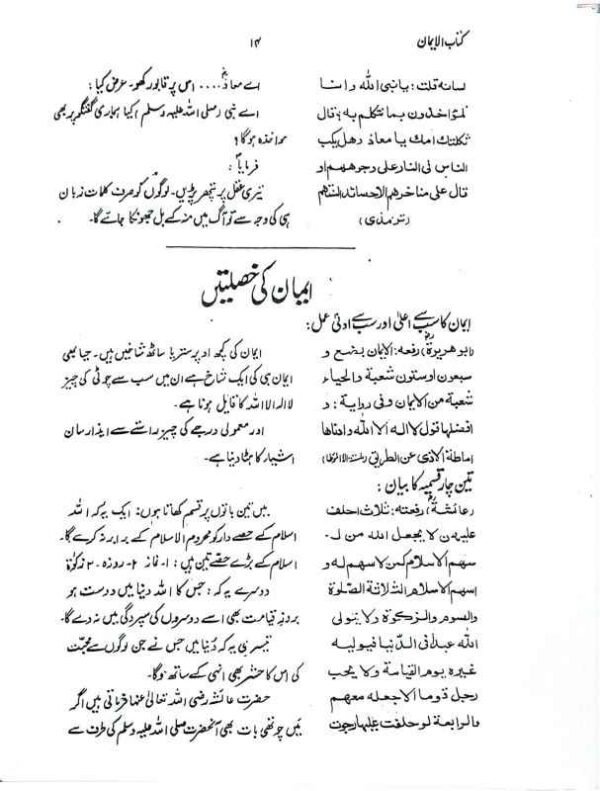 کتاب الایمان
۱۴
لسانہ قلت: یا نبی اللہ وانا
لمؤاخذون بما نتکلم بہ؟ قال
ثکلتک امک یا معاذ وھل یکب
الناس فی النار علی وجوھھم او
قال علی مناخرھم الاحصائد السنتھم
(ترمذی)
اے معاذ.... اس پر قابو رکھو۔ عرض کیا:
اے نبی (صلی اللہ علیہ وسلم) کیا ہماری گفتگو پر بھی
مواخذہ ہوگا؟
فرمایا:
تیری عقل پر پتھر پڑیں۔ لوگوں کو صرف کلمات زبان
ہی کی وجہ سے تو آگ میں منہ کے بل جھونکا جائے گا۔
ایمان کی خصلتیں
ایمان کا سب سے اعلیٰ اور سب سے ادنیٰ عمل:
(ابو ھریرۃؓ) رفعہ: الایمان بضع و
سبعون او ستون شعبۃ والحیاء
شعبۃ من الایمان وفی روایۃ: و
افضلھا قول لا الہ الا اللہ وادناھا
اماطۃ الاذی عن الطریق
ایمان کی کچھ اوپر ستر یا ساٹھ شاخیں ہیں۔ حیا بھی
ایمان ہی کی ایک شاخ ہے ان میں سب سے چوٹی کی چیز
لا الہ الا اللہ کا قایل ہونا ہے۔
اور معمولی درجے کی چیز راستے سے ایذا رسان
اشیار کا ہٹا دینا ہے۔
تین چار قسمیہ کا بیان:
(عائشۃؓ) رفعتہ: ثلاث احلف
علیھن لا یجعل اللہ من لہ
سھم الاسلام کمن لا سھم لہ و
اسھم الاسلام الثلاثۃ الصلوۃ
والصوم والزکوۃ ولا یتولی
اللہ عبدا فی الدنیا فیولیہ
غیرہ یوم القیامۃ ولا یحب
رجل قوما الا جعلہ معھم
والرابعۃ لو حلفت علیھا رجوت
میں تین باتوں پر قسم کھاتا ہوں: ایک یہ کہ اللہ
اسلام کے حصے دار کو محروم الاسلام کے برابر نہ کرے گا۔
اسلام کے بڑے حصے تین ہیں: ۱- نماز ۲- روزہ ۳- زکوٰۃ
دوسرے یہ کہ: جس کا اللہ دنیا میں دوست ہو
بروز قیامت بھی اسے دوسروں کی سپردگی میں نہ دے گا۔
تیسری یہ کہ دنیا میں جس نے جن لوگوں سے محبت
کی اس کا حشر بھی انہی کے ساتھ ہوگا۔
حضرت عائشہ رضی اللہ تعالیٰ عنہا فرماتی ہیں اگر
میں چوتھی بات بھی آنحضرت صلی اللہ علیہ وسلم کی طرف سے